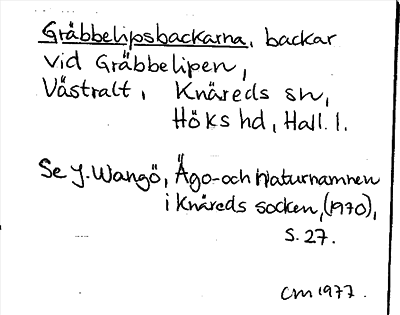 Gråbbelipsbackarna, backar
vid Gråbbelipen,
Västralt, Knäreds sn,
Höks hd, Hall. l.
Se J. Wangö, Ägo- och Naturnamnen
i Knäreds socken, (1970),
s. 27.
CM 1977.